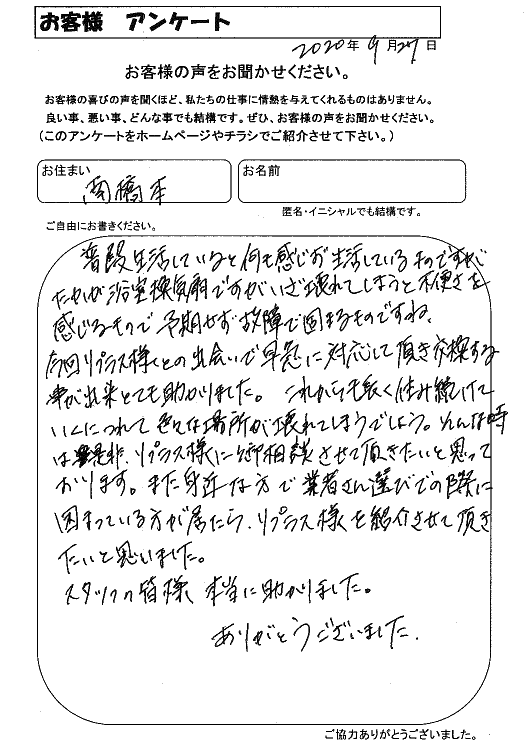 お客様 アンケート
2020年 9月27日
お客様の声をお聞かせください。
お客様の喜びの声を聞くほど、私たちの仕事に情熱を与えてくれるものはありません。
良い事、悪い事、どんな事でも結構です。ぜひ、お客様の声をお聞かせください。
(このアンケートをホームページやチラシでご紹介させて下さい。)
お住まい 南橋本
お名前
匿名・イニシャルでも結構です。
ご自由にお書きください。
普段生活していると何も感じず生活しているものですが
たかが浴室換気扇ですがいざ壊れてしまうと不便さを
感じるもので予期せず故障で困まるものですね。
今回リプラス様との出会いで早急に対応して頂き交換する
事が出来とても助かりました。これからも長く住み続けて
いくにつれて色々な場所が壊れてしまうでしょう。そんな時
は是非、リプラス様にご相談させて頂きたいと思って
おります。また身近な方で業者さん選びでの際に
困まっている方が居たら、リプラス様を紹介させて頂き
たいと思いました。
スタッフの皆様、本当に助かりました。
ありがとうございました.
ご協力ありがとうございました。